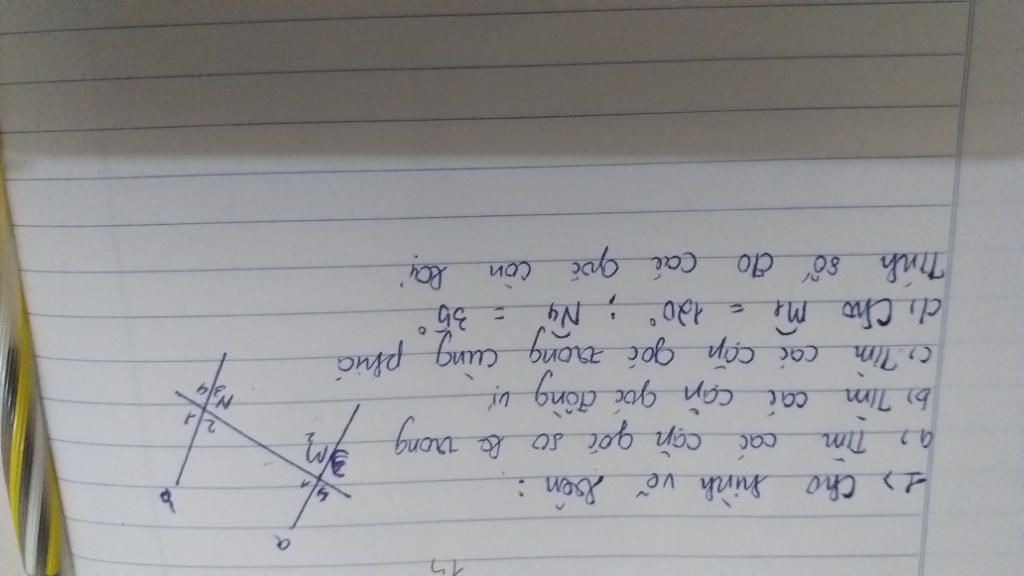 1) Cho hình vẽ bên:
a) Tìm các cặp góc so le trong
b) Tìm các cặp góc đồng vị
c) Tìm các cặp góc trong cùng phía
d) Cho M1 = 120° ; N4 = 35°
Tính số đo các góc còn lại
a
4 1
3 M 2
b
2 1
N 3 4